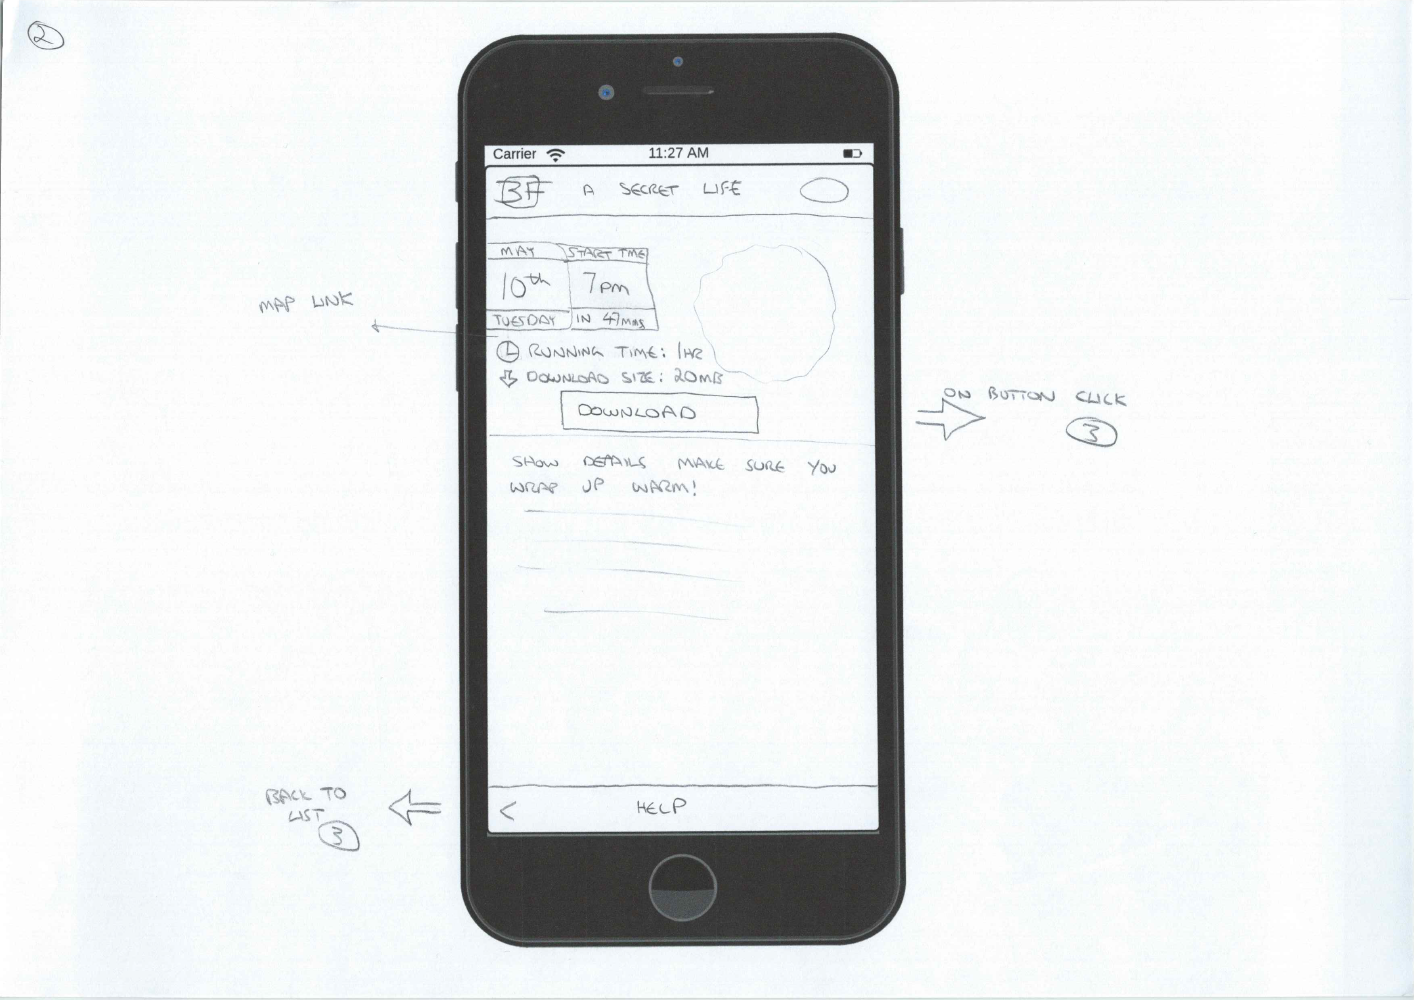 2
Carrier 11:27 AM
BF A SECRET LIFE
MAY START TIME
10th 7pm
TUESDAY IN 47mins
MAP LINK
RUNNING TIME: 1HR
DOWNLOAD SIZE: 20MB
DOWNLOAD
ON BUTTON CLICK
3
SHOW DETAILS MAKE SURE YOU
WRAP UP WARM!
BACK TO
LIST
3
< HELP